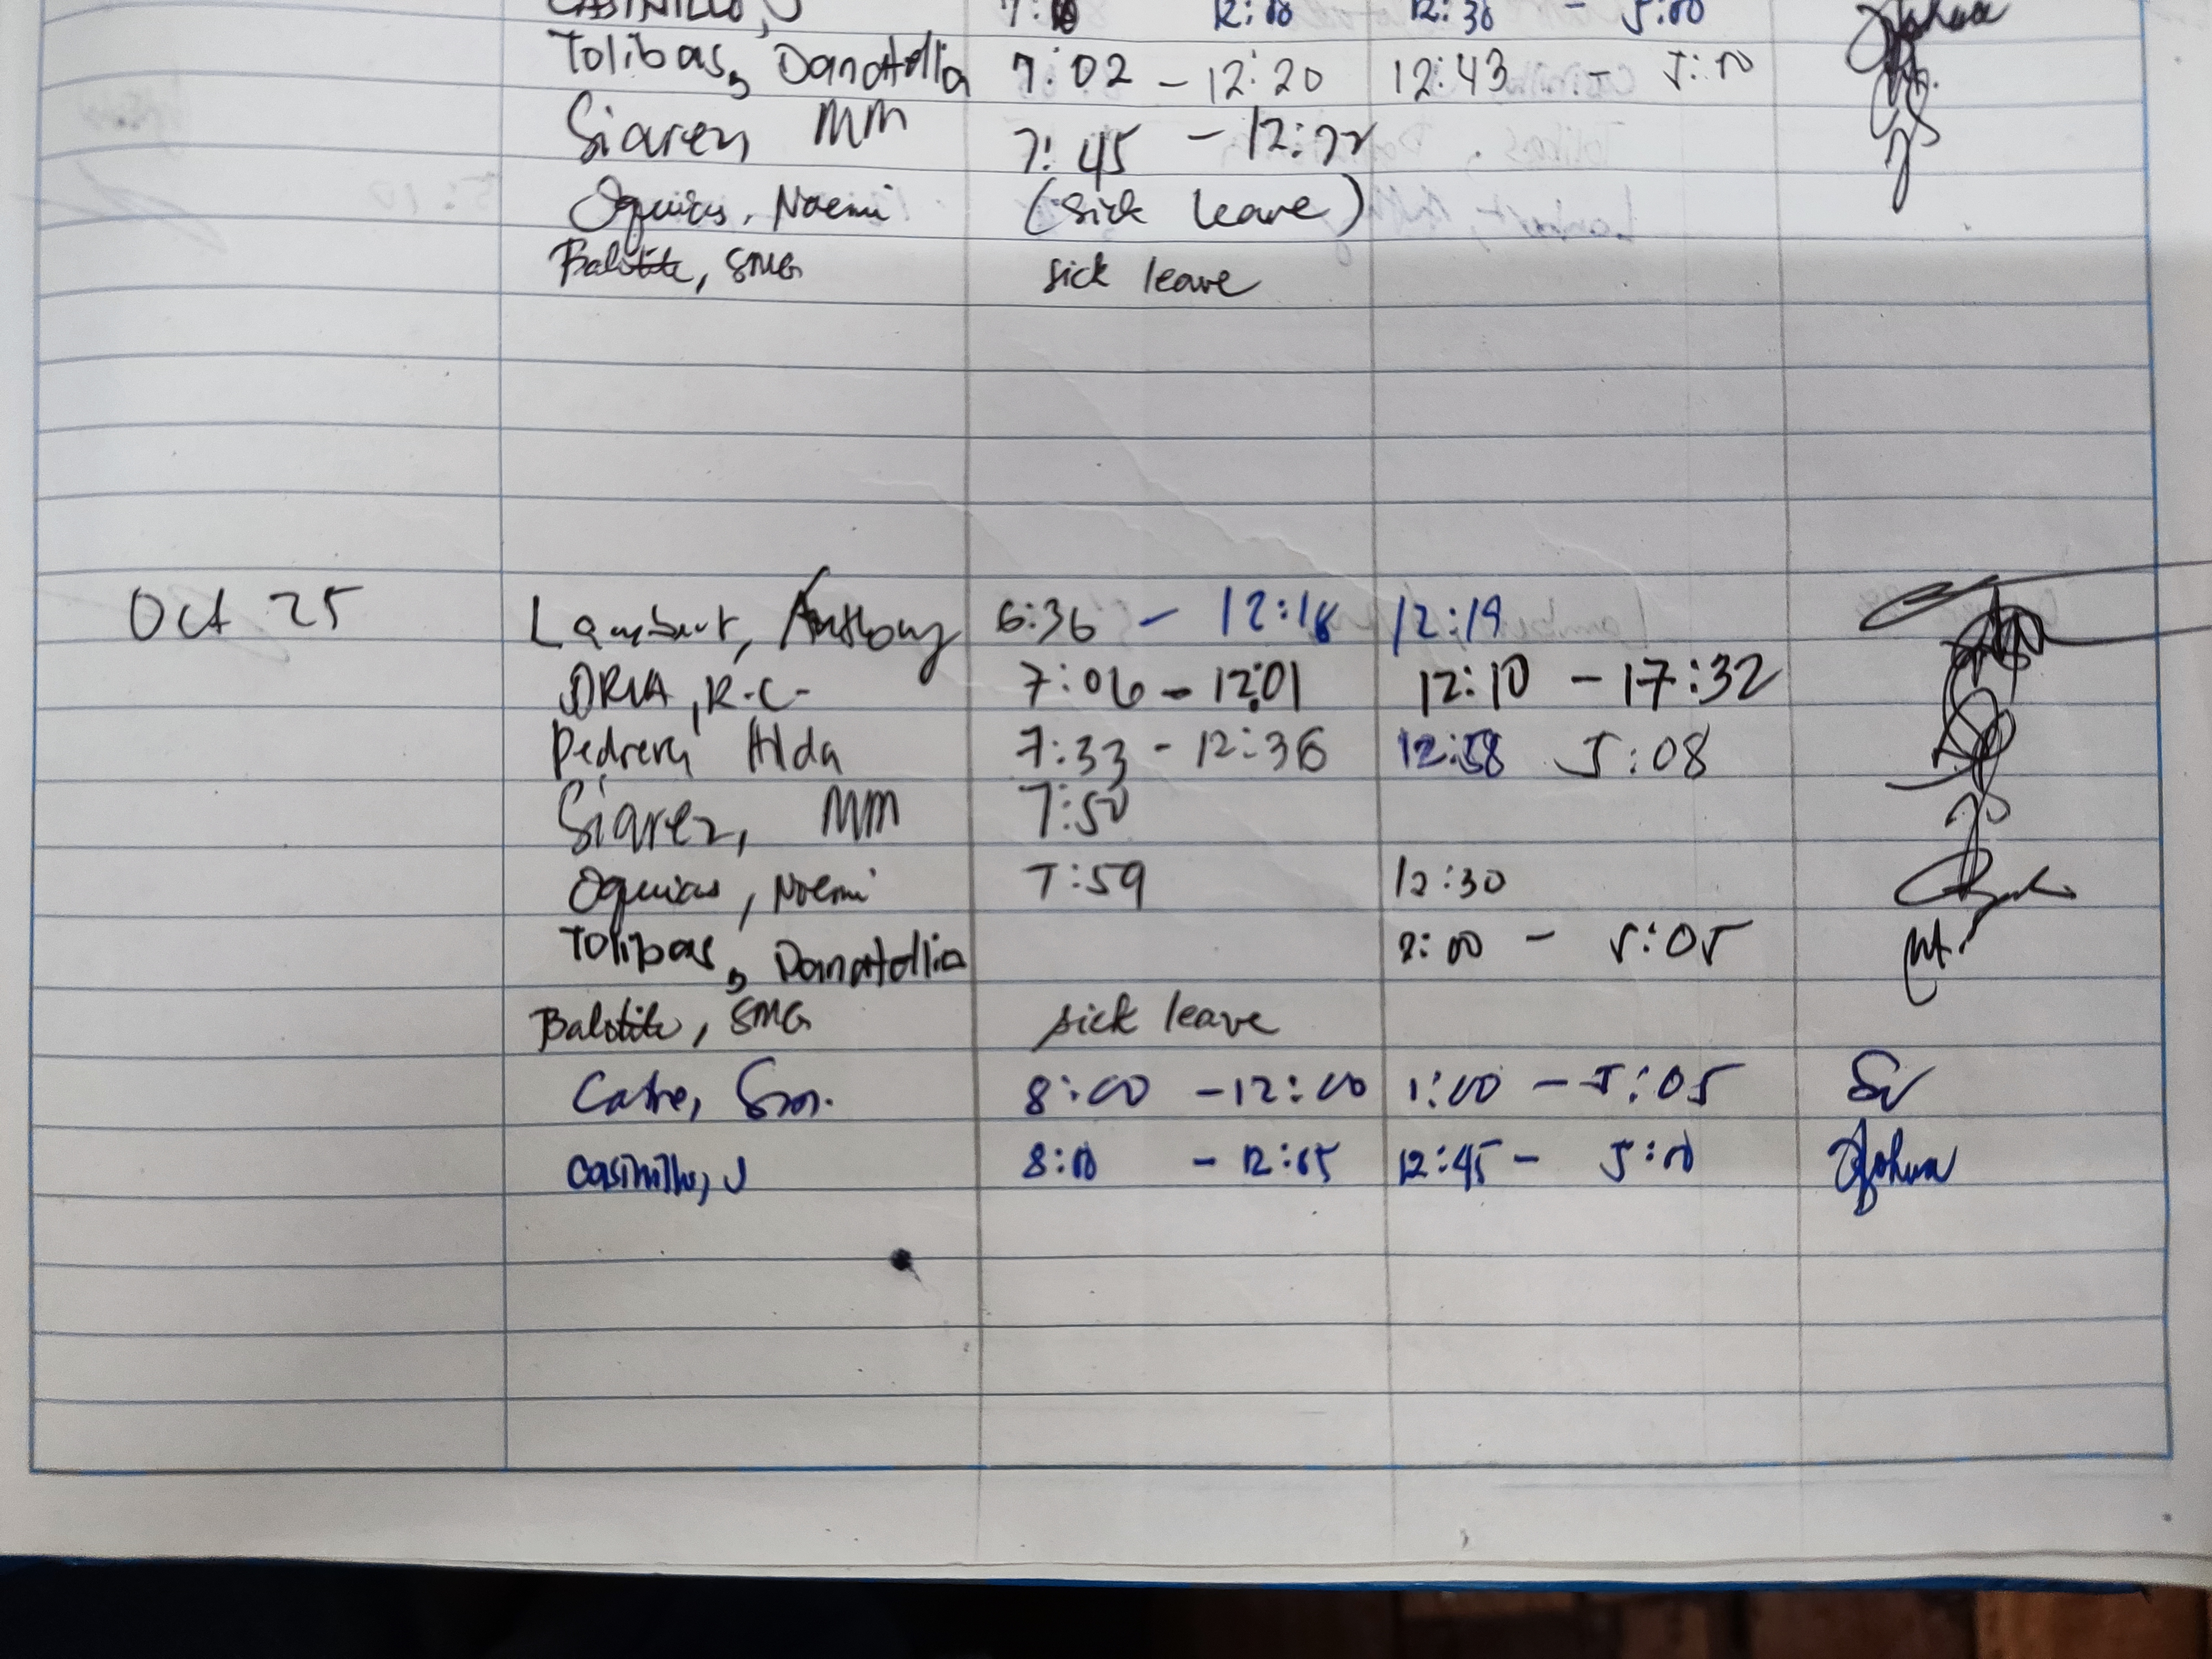 CASINILLO, J 7:00 12:00 12:30 - 5:00
Tolibas, Danatella 7:02 - 12:20 12:43 - 5:00
Siarez, MM 7:45 - 12:22
Oquias, Noemi (sick leave)
Balotite, SMG sick leave
Oct 25 Lambert, Anthony 6:36 - 12:18 12:19
ORIA, R.C. 7:06 - 12:01 12:10 - 17:32
Pedrera Hilda 7:33 - 12:36 12:58 5:08
Siarez, MM 7:50
Oquias, Noemi 7:59 12:30
Tolibas, Danatella :00 - 5:05
Balotite, SMG sick leave
8:00 - 12:00 1:00 - 5:05
Casinillo, J 8:00 - 12:05 12:45 - 5:00 Joshua